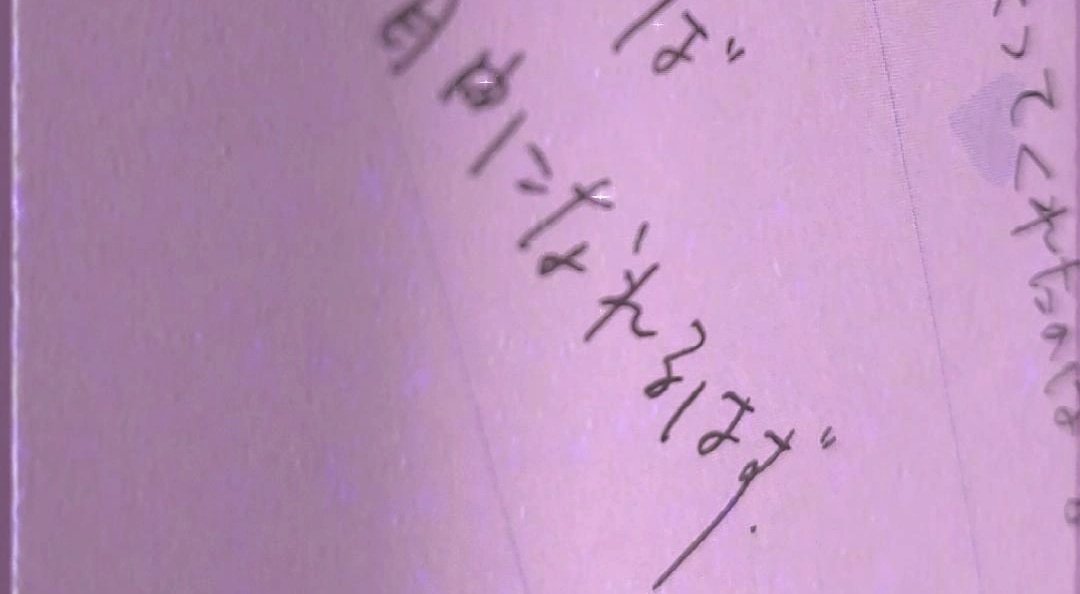 ってくれたのは
ば
自由になれるはず